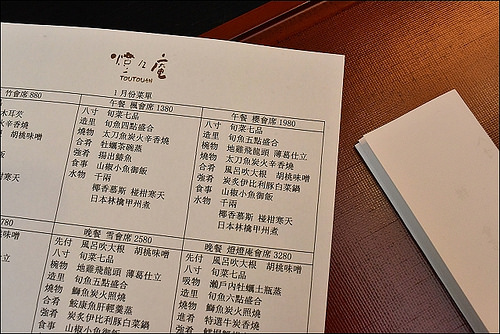 燈燈庵
TOUTOUAN
1月份菜單
竹會席 880
木耳芡
火辛香燒
胡桃味噌
飯
寒天
午餐 楓會席 1380
八寸 旬菜七品
造里 旬魚四點盛合
燒物 太刀魚炭火辛香燒
合肴 牡蠣茶碗蒸
強肴 揚出鯡魚
食事 山椒小魚御飯
水物 千兩
椰香慕斯 椪柑寒天
日本林檎甲州煮
午餐 櫻會席 1980
八寸 旬菜七品
造里 旬魚五點盛合
椀物 地雞飛龍頭 薄葛仕立
燒物 太刀魚炭火辛香燒
合肴 風呂吹大根 胡桃味噌
強肴 炭炙伊比利豚白菜鍋
食事 山椒小魚御飯
水物 千兩
椰香慕斯 椪柑寒天
日本林檎甲州煮
780
味噌
仕立
晚餐 雪會席 2580
先付 風呂吹大根 胡桃味噌
八寸 旬菜七品
椀物 地雞飛龍頭 薄葛仕立
造里 旬魚五點盛合
燒物 鰤魚炭火照燒
合肴 鮟康魚肝輕羹蒸
強肴 炭炙伊比利豚白菜鍋
食事 山椒小魚御飯
晚餐 燈燈庵會席 3280
先付 風呂吹大根 胡桃味噌
八寸 旬菜七品
吸物 瀨戶內牡蠣土瓶蒸
造里 旬魚六點盛合
燒物 鰤魚炭火照燒
進肴 特選牛炭香燒